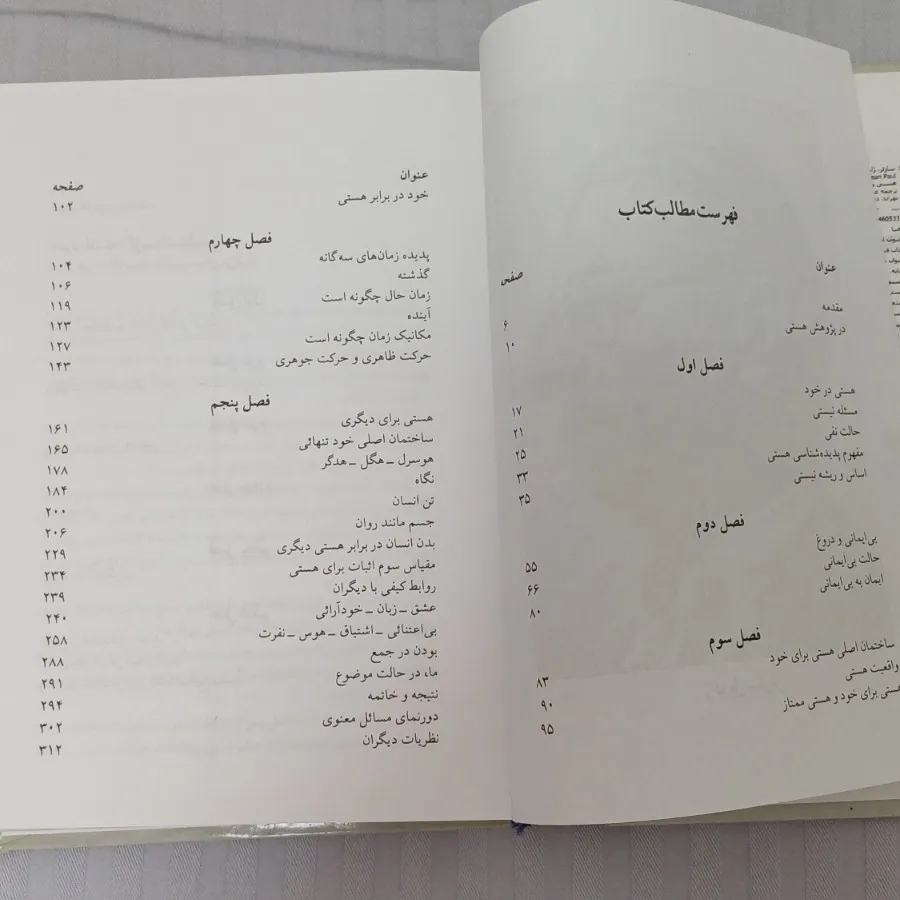 فهرست مطالب کتاب
عنوان صفحه
مقدمه ۶
در پژوهش هستی ۱۰
فصل اول
هستی در خود ۱۷
مسئله نیستی ۲۱
حالت نفی ۲۵
مفهوم پدیده‌شناسی هستی ۳۳
اساس و ریشه نیستی ۳۵
فصل دوم
بی‌ایمانی و دروغ ۵۵
حالت بی‌ایمانی ۶۶
ایمان به بی‌ایمانی ۸۰
فصل سوم
ساختمان اصلی هستی برای خود ۸۳
واقعیت هستی ۹۰
هستی برای خود و هستی ممتاز ۹۵
عنوان صفحه
خود در برابر هستی ۱۰۲
فصل چهارم
پدیده زمان‌های سه‌گانه ۱۰۴
گذشته ۱۰۶
زمان حال چگونه است ۱۱۹
آینده ۱۲۳
مکانیک زمان چگونه است ۱۲۷
حرکت ظاهری و حرکت جوهری ۱۴۳
فصل پنجم
هستی برای دیگری ۱۶۱
ساختمان اصلی خود تنهائی ۱۶۵
هوسرل ـ هگل ـ هدگر ۱۷۸
نگاه ۱۸۴
تن انسان ۲۰۰
جسم مانند روان ۲۰۶
بدن انسان در برابر هستی دیگری ۲۲۹
مقیاس سوم اثبات برای هستی ۲۳۴
روابط کیفی با دیگران ۲۳۹
عشق ـ زبان ـ خودآرائی ۲۴۰
بی‌اعتنائی ـ اشتیاق ـ هوس ـ نفرت ۲۵۸
بودن در جمع ۲۸۸
ما، در حالت موضوع ۲۹۱
نتیجه و خاتمه ۲۹۴
دورنمای مسائل معنوی ۳۰۲
نظریات دیگران ۳۱۲